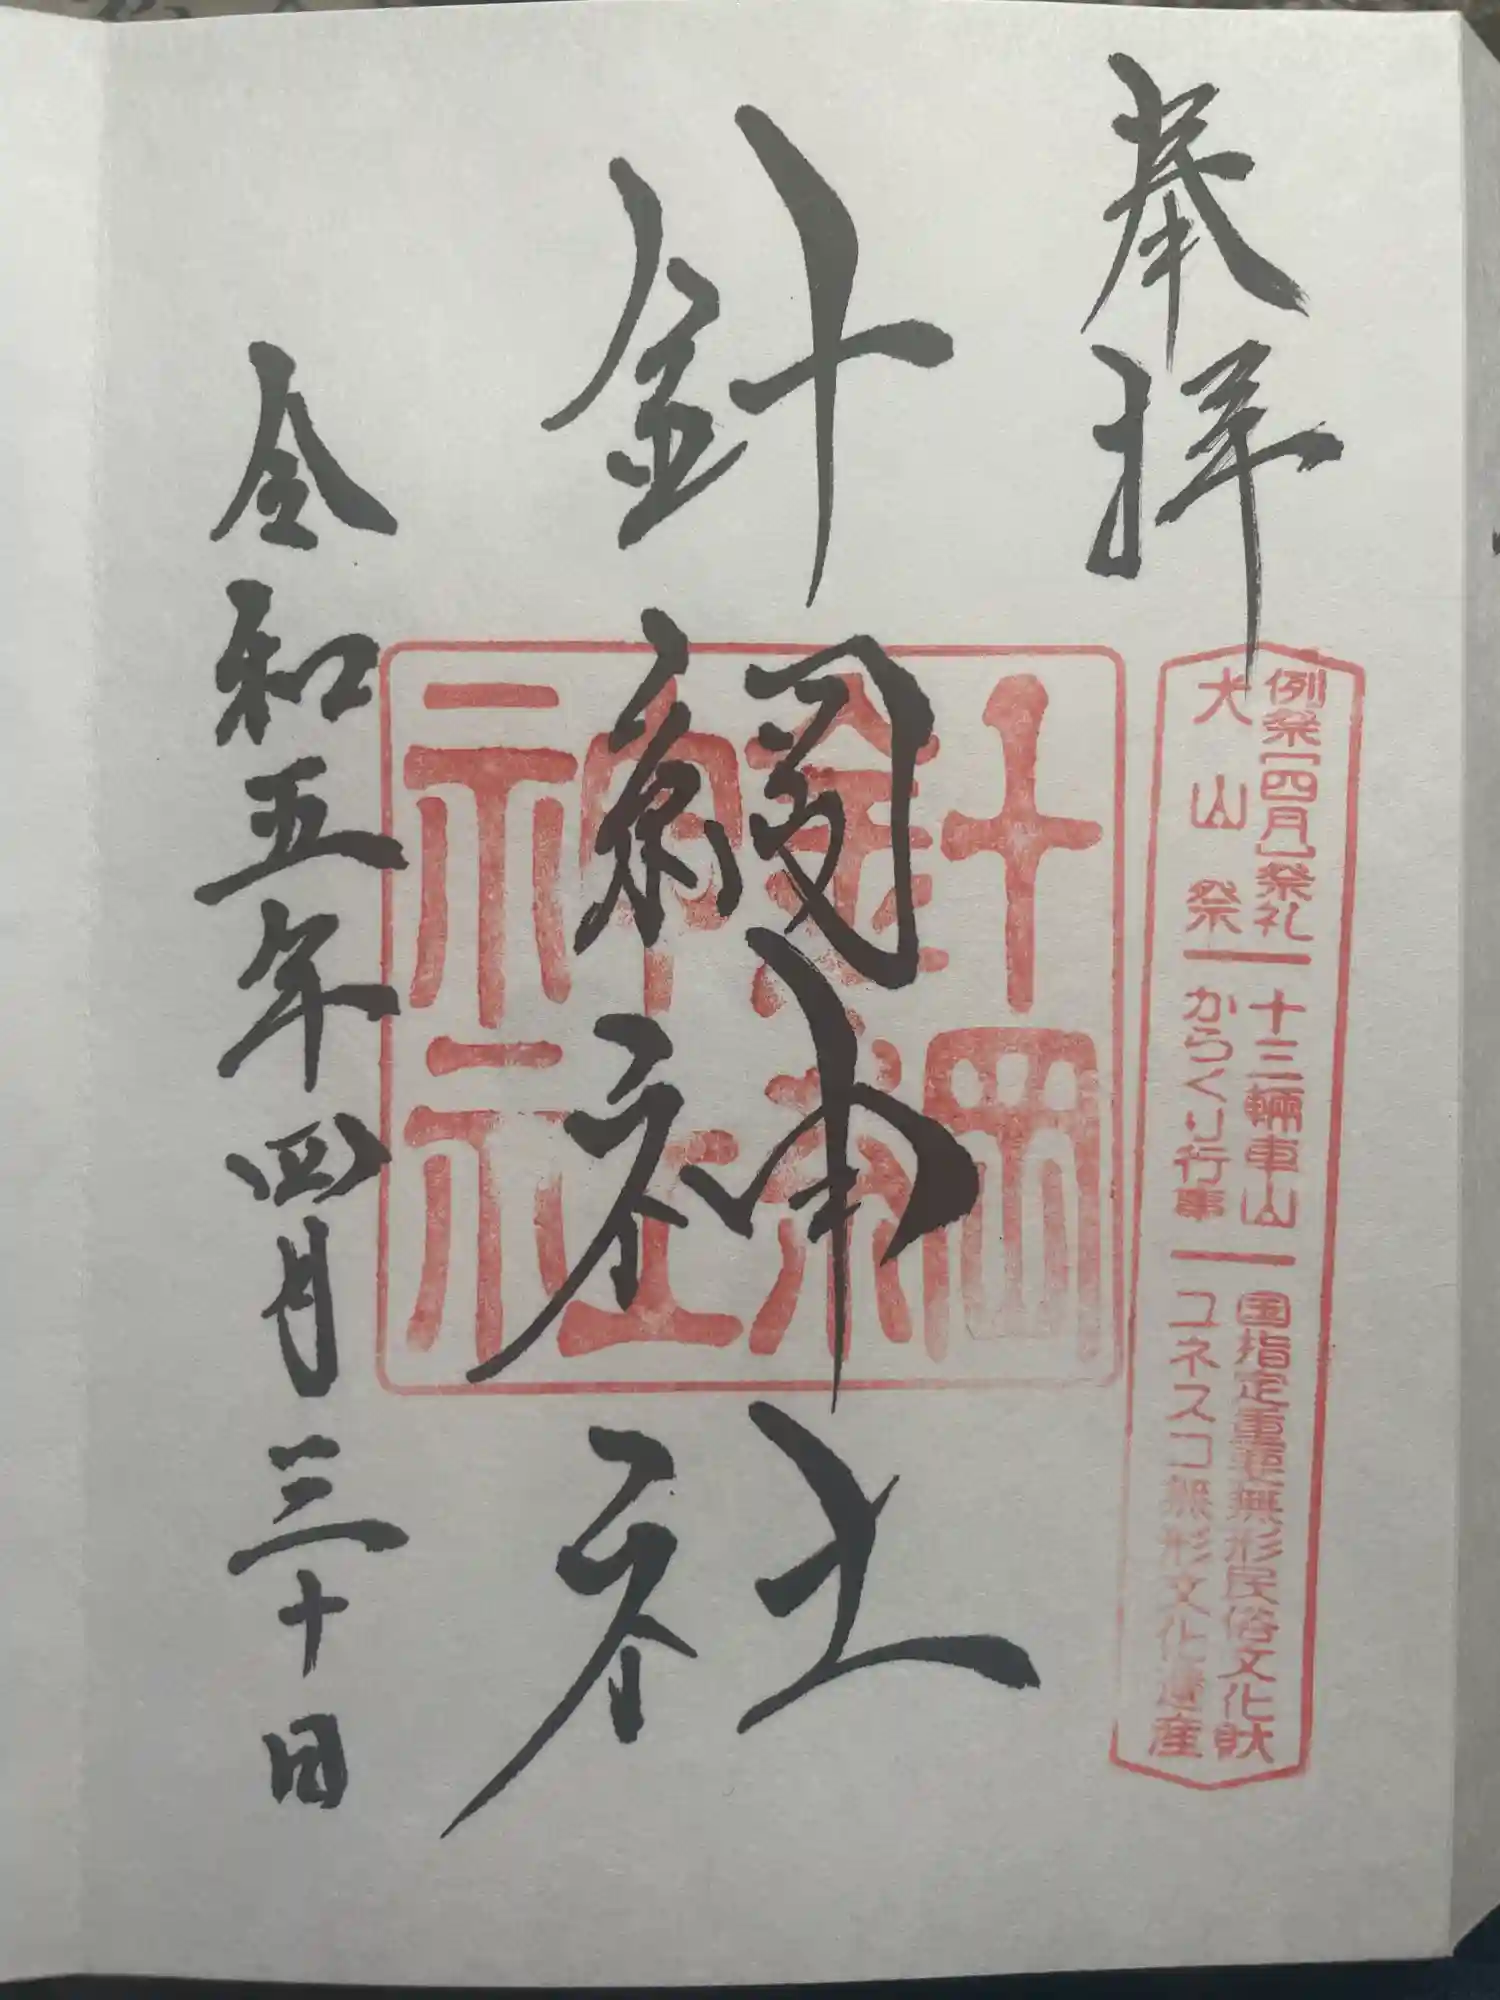 奉拝
例祭[四月]祭礼 十三輛車山 国指定重要無形民俗文化財
犬山祭 からくり行事 ユネスコ無形文化遺産
針綱神社
針綱神社
令和五年四月三十日